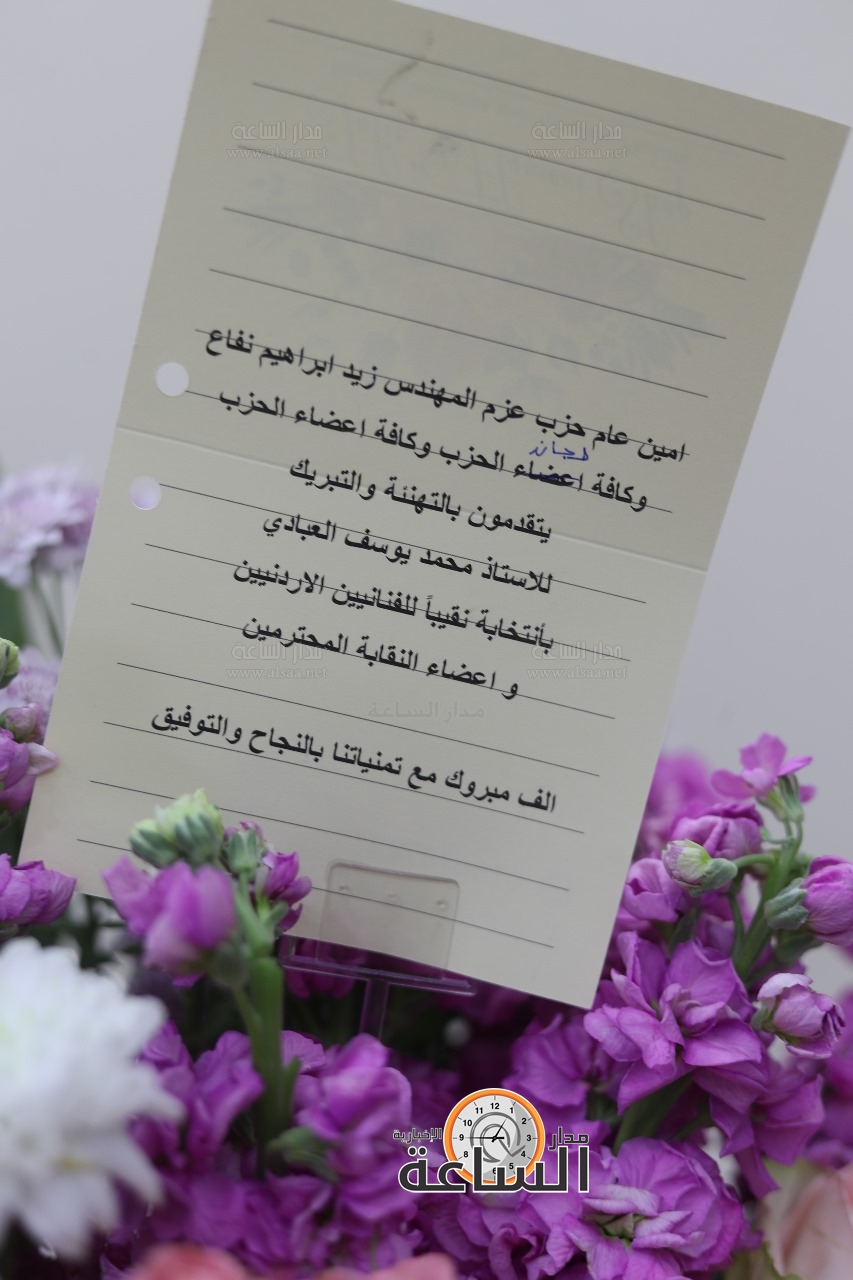 مدار الساعة
www.alsaa.net
مدار الساعة
www.alsaa.net
امين عام حزب عزم المهندس زيد ابراهيم نفاع
لجان
وكافة اعضاء الحزب وكافة اعضاء الحزب
يتقدمون بالتهنئة والتبريك
للاستاذ محمد يوسف العبادي
بأنتخابة نقيباً للفنانيين الاردنيين
و اعضاء النقابة المحترمين
مدار الساعة
www.alsaa.net
مدار الساعة
www.alsaa.net
مدار الساعة
الف مبروك مع تمنياتنا بالنجاح والتوفيق
مدار
الساعة
الإخبارية